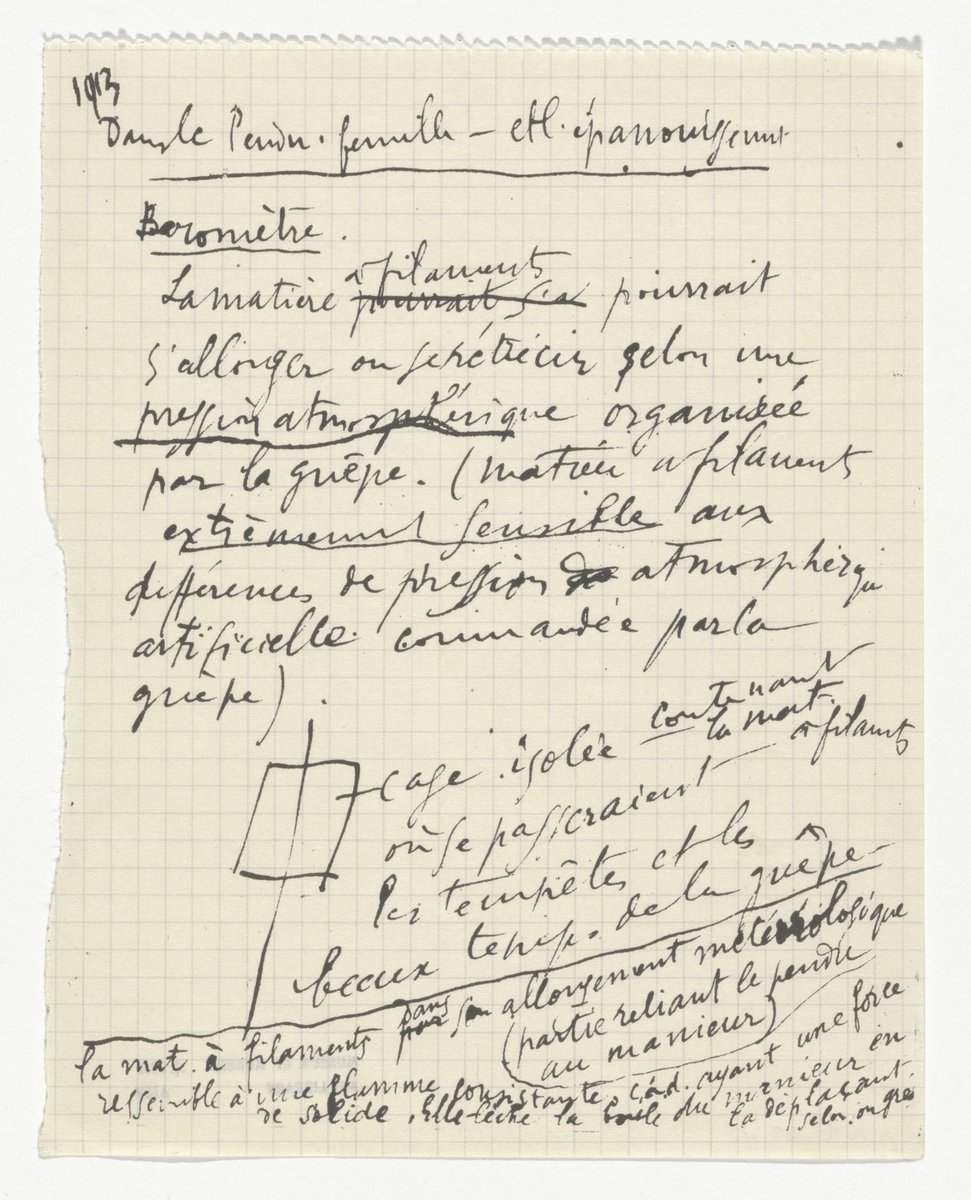 1913
Dans le Pendu. femelle – et l'épanouissement
Baromètre.
à filaments
La matière pourrait s'a pourrait
s'allonger ou se rétrécir selon une
pression atmosphérique organisée
par la guêpe. (matière à filaments
extrêmement sensible aux
différences de pression de atmosphériqu
artificielle. commandée par la
guêpe).
contenant
la mat.
à filaments
cage isolée
où se passeraient
les tempêtes et les
beaux temps de la guêpe –
la mat. à filaments dans son allongement météorologique
(partie reliant le pendu
au manieur)
ressemble à une flamme consistante, c.à.d. ayant une force
de solide. Elle lèche la boule du manieur en
la déplaçant.
selon. on gré